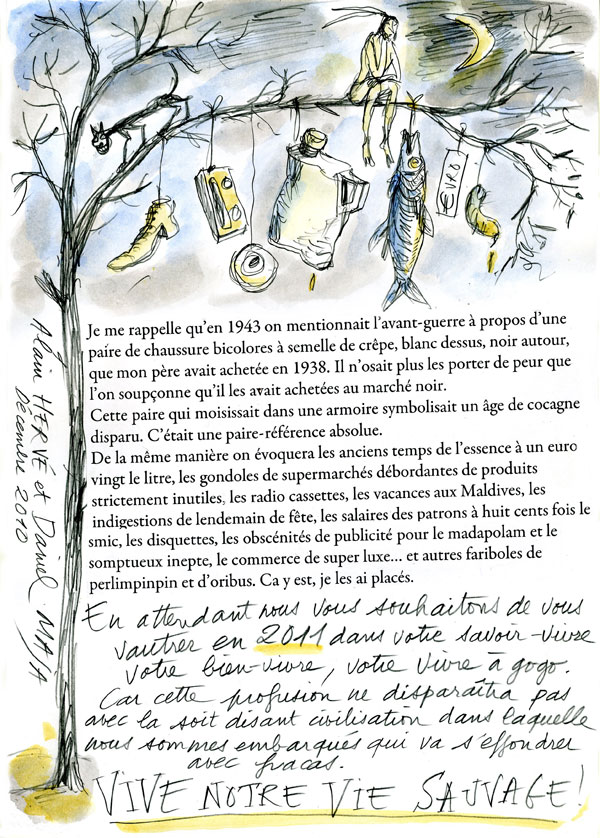 EURO
Je me rappelle qu'en 1943 on mentionnait l'avant-guerre à propos d'une
paire de chaussure bicolores à semelle de crêpe, blanc dessus, noir autour,
que mon père avait achetée en 1938. Il n'osait plus les porter de peur que
l'on soupçonne qu'il les avait achetées au marché noir.
Cette paire qui moisissait dans une armoire symbolisait un âge de cocagne
disparu. C'était une paire-référence absolue.
De la même manière on évoquera les anciens temps de l'essence à un euro
vingt le litre, les gondoles de supermarchés débordantes de produits
strictement inutiles, les radio cassettes, les vacances aux Maldives, les
indigestions de lendemain de fête, les salaires des patrons à huit cents fois le
smic, les disquettes, les obscénités de publicité pour le madapolam et le
somptueux inepte, le commerce de super luxe... et autres fariboles de
perlimpinpin et d'oribus. Ca y est, je les ai placés.
En attendant nous vous souhaitons de vous
vautrer en 2011 dans votre savoir-vivre
votre bien-vivre, votre vivre à gogo.
Car cette profusion ne disparaîtra pas
avec la soit disant civilisation dans laquelle
nous sommes embarqués qui va s'effondrer
avec fracas.
VIVE NOTRE VIE SAUVAGE!
Alain HERVÉ et Daniel MAJA
Décembre 2010